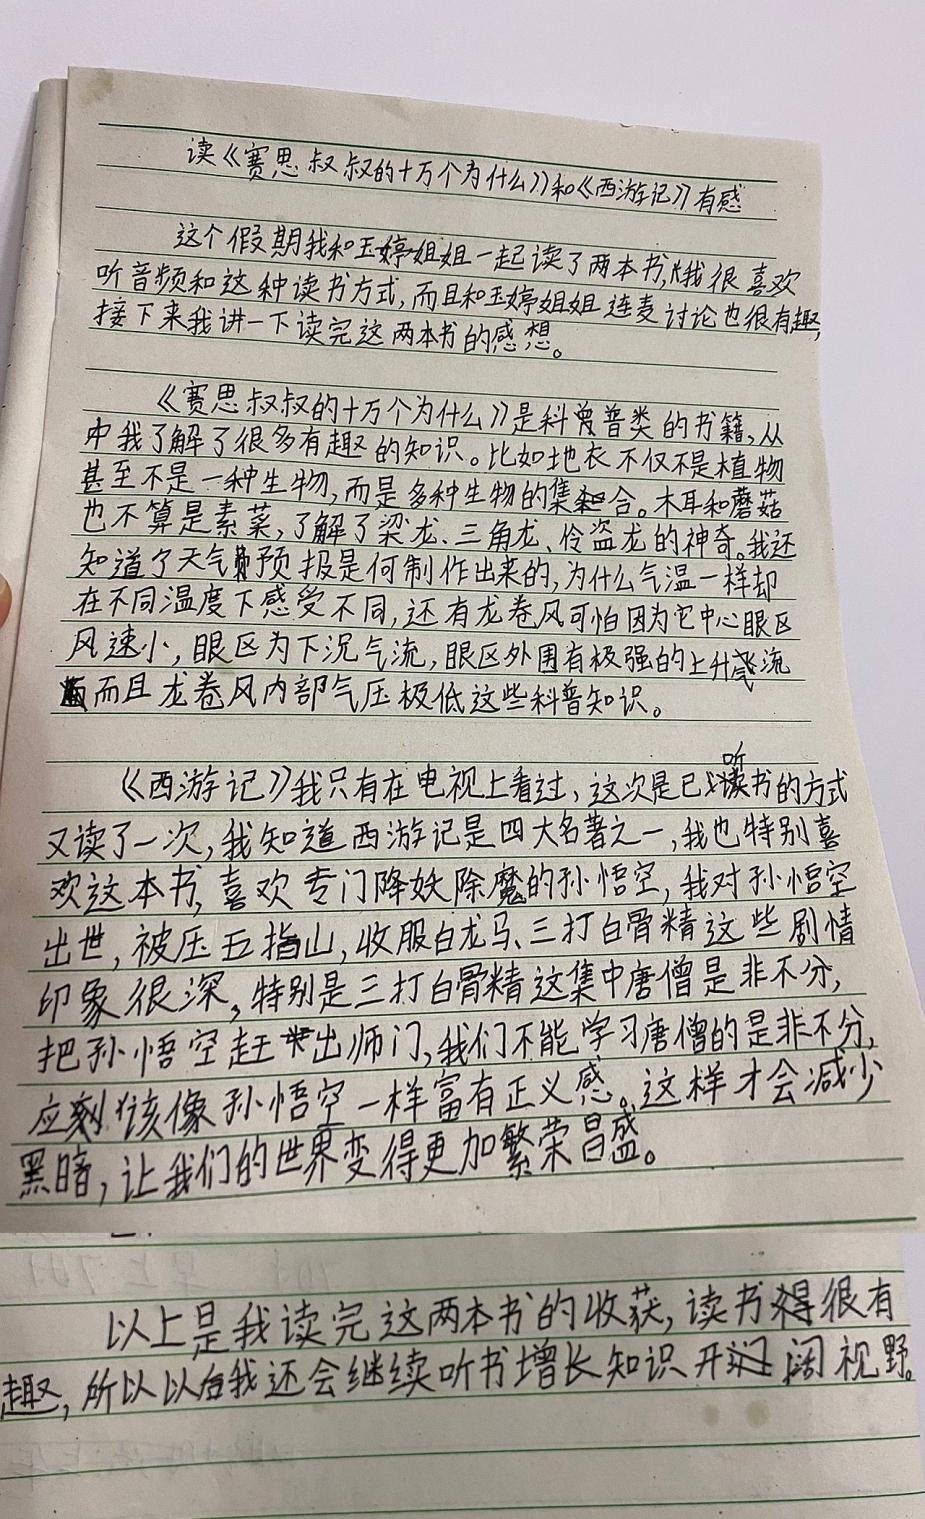 读《赛思叔叔的十万个为什么》和《西游记》有感
这个假期我和玉婷姐姐一起读了两本书,我很喜欢
听音频和这种读书方式,而且和玉婷姐姐连麦讨论也很有趣,
接下来我讲一下读完这两本书的感想。
《赛思叔叔的十万个为什么》是科普类的书籍,从
中我了解了很多有趣的知识。比如地衣不仅不是植物
甚至不是一种生物,而是多种生物的集合。木耳和蘑菇
也不算是素菜,了解了梁龙、三角龙、伶盗龙的神奇。我还
知道了天气预报是何制作出来的,为什么气温一样却
在不同温度下感受不同,还有龙卷风可怕因为它中心眼区
风速小,眼区为下沉气流,眼区外围有极强的上升气流
而且龙卷风内部气压极低这些科普知识。
《西游记》我只有在电视上看过,这次是已听书的方式
又读了一次,我知道西游记是四大名著之一,我也特别喜
欢这本书,喜欢专门降妖除魔的孙悟空,我对孙悟空
出世,被压五指山,收服白龙马、三打白骨精这些剧情
印象很深,特别是三打白骨精这集中唐僧是非不分,
把孙悟空赶出师门,我们不能学习唐僧的是非不分,
应该像孙悟空一样富有正义感。这样才会减少
黑暗,让我们的世界变得更加繁荣昌盛。
以上是我读完这两本书的收获,读书很有
趣,所以以后我还会继续听书增长知识开阔视野。